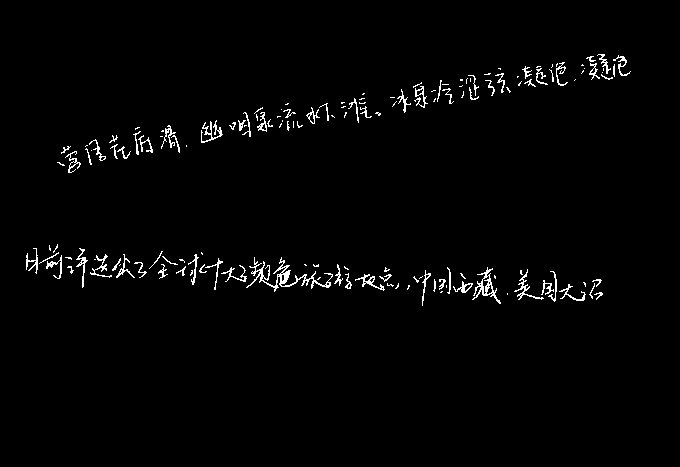 莺语花底滑,幽咽泉流水下滩。冰泉冷涩弦凝绝,凝绝
目前评选出了全球十大濒危旅游地点,中国西藏,美国大沼